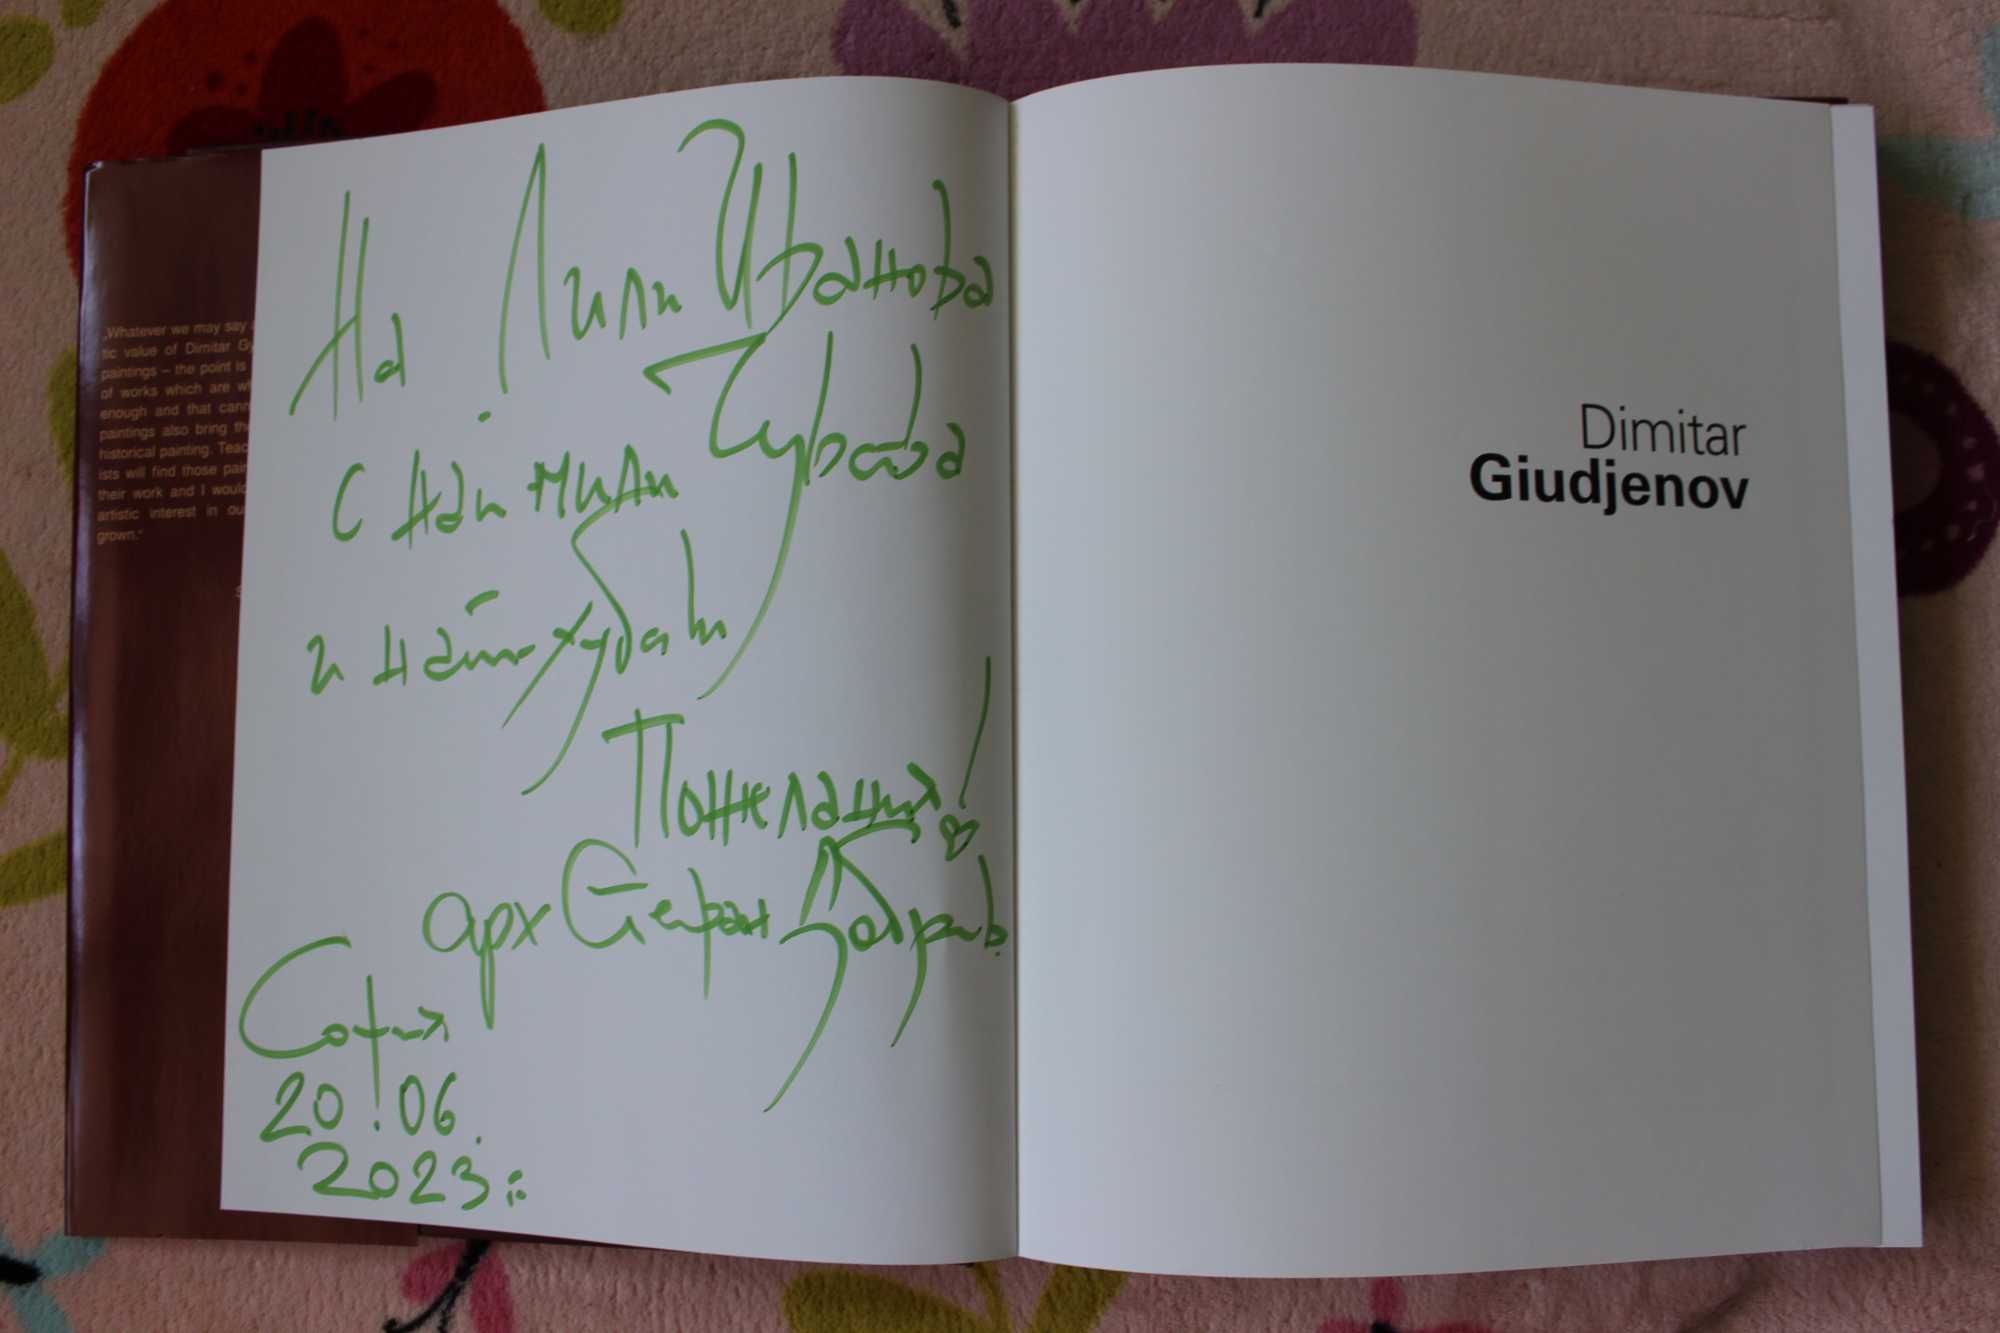 „Whatever we may say
tic value of Dimitar Gy
paintings – the point is
of works which are wh
enough and that cann
paintings also bring the
historical painting. Teac
ists will find those pain
their work and I would
artistic interest in ou
grown.“
На Лили Иванова
с най мили чувства
и най-хубави
Пожелания!
арх Стефан Добрев
София
20.06.
2023г.
Dimitar
Giudjenov